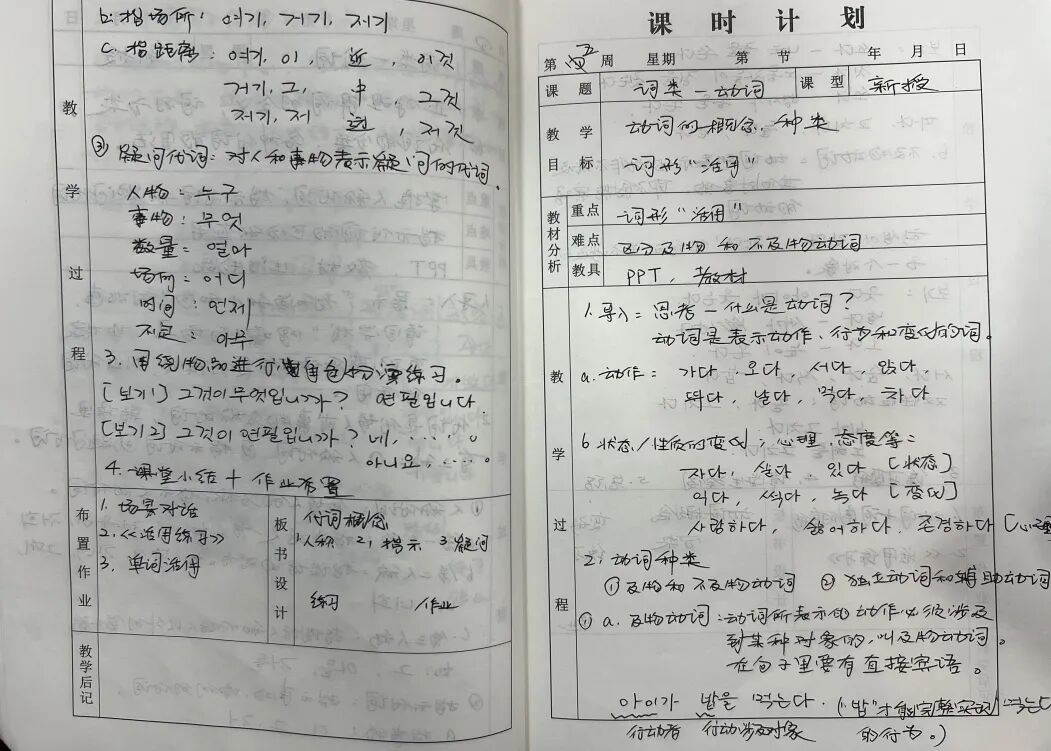 b. 指场所: 여기, 거기, 저기
c. 指距离: 여기, 이, 近, 이것
거기, 그, 中, 그것
저기, 저, 远, 저것
③ 疑问代词: 对人和事物表示疑问的代词。
人物: 누구
事物: 무엇
数量: 얼마
场所: 어디
时间: 언제
不定: 아무
3. 围绕物品进行角色扮演练习。
[보기1] 그것이 무엇입니까? 연필입니다
[보기2] 그것이 연필입니까? 네, ……。
아니요, ……。
4. 课堂小结 + 作业布置
教学过程
布置作业
1. 场景对话
2. 《活用练习》
3. 单词活用
板书设计
代词概念 ①
1. 人称 2. 指示 3. 疑问
练习 作业
教学后记
课时计划
第 周 星期 第 节 年 月 日
课题 词类－动词 课型 新授
教学目标 动词的概念、种类
词形“活用”
教材分析
重点 词形“活用”
难点 区分及物和不及物动词
教具 PPT, 教材
教学过程
1. 导入: 思考－什么是动词?
动词是表示动作、行为和变化的词。
a. 动作: 가다, 오다, 서다, 앉다,
뛰다, 날다, 먹다, 차다
b 状态/性质的变化; 心理, 态度等:
자다, 살다, 있다 [状态]
익다, 썩다, 녹다 [变化]
사랑하다, 싫어하다, 존경하다 [心理
2. 动词种类
①及物和不及物动词 ②独立动词和辅助动词
① a. 及物动词: 动词所表示的动作必须涉及
到某种对象的, 叫及物动词。
在句子里要有直接宾语。
아이가 밥을 먹는다. (“밥”才能完整实现 먹는다
行动者 行动涉及对象 的行为。)